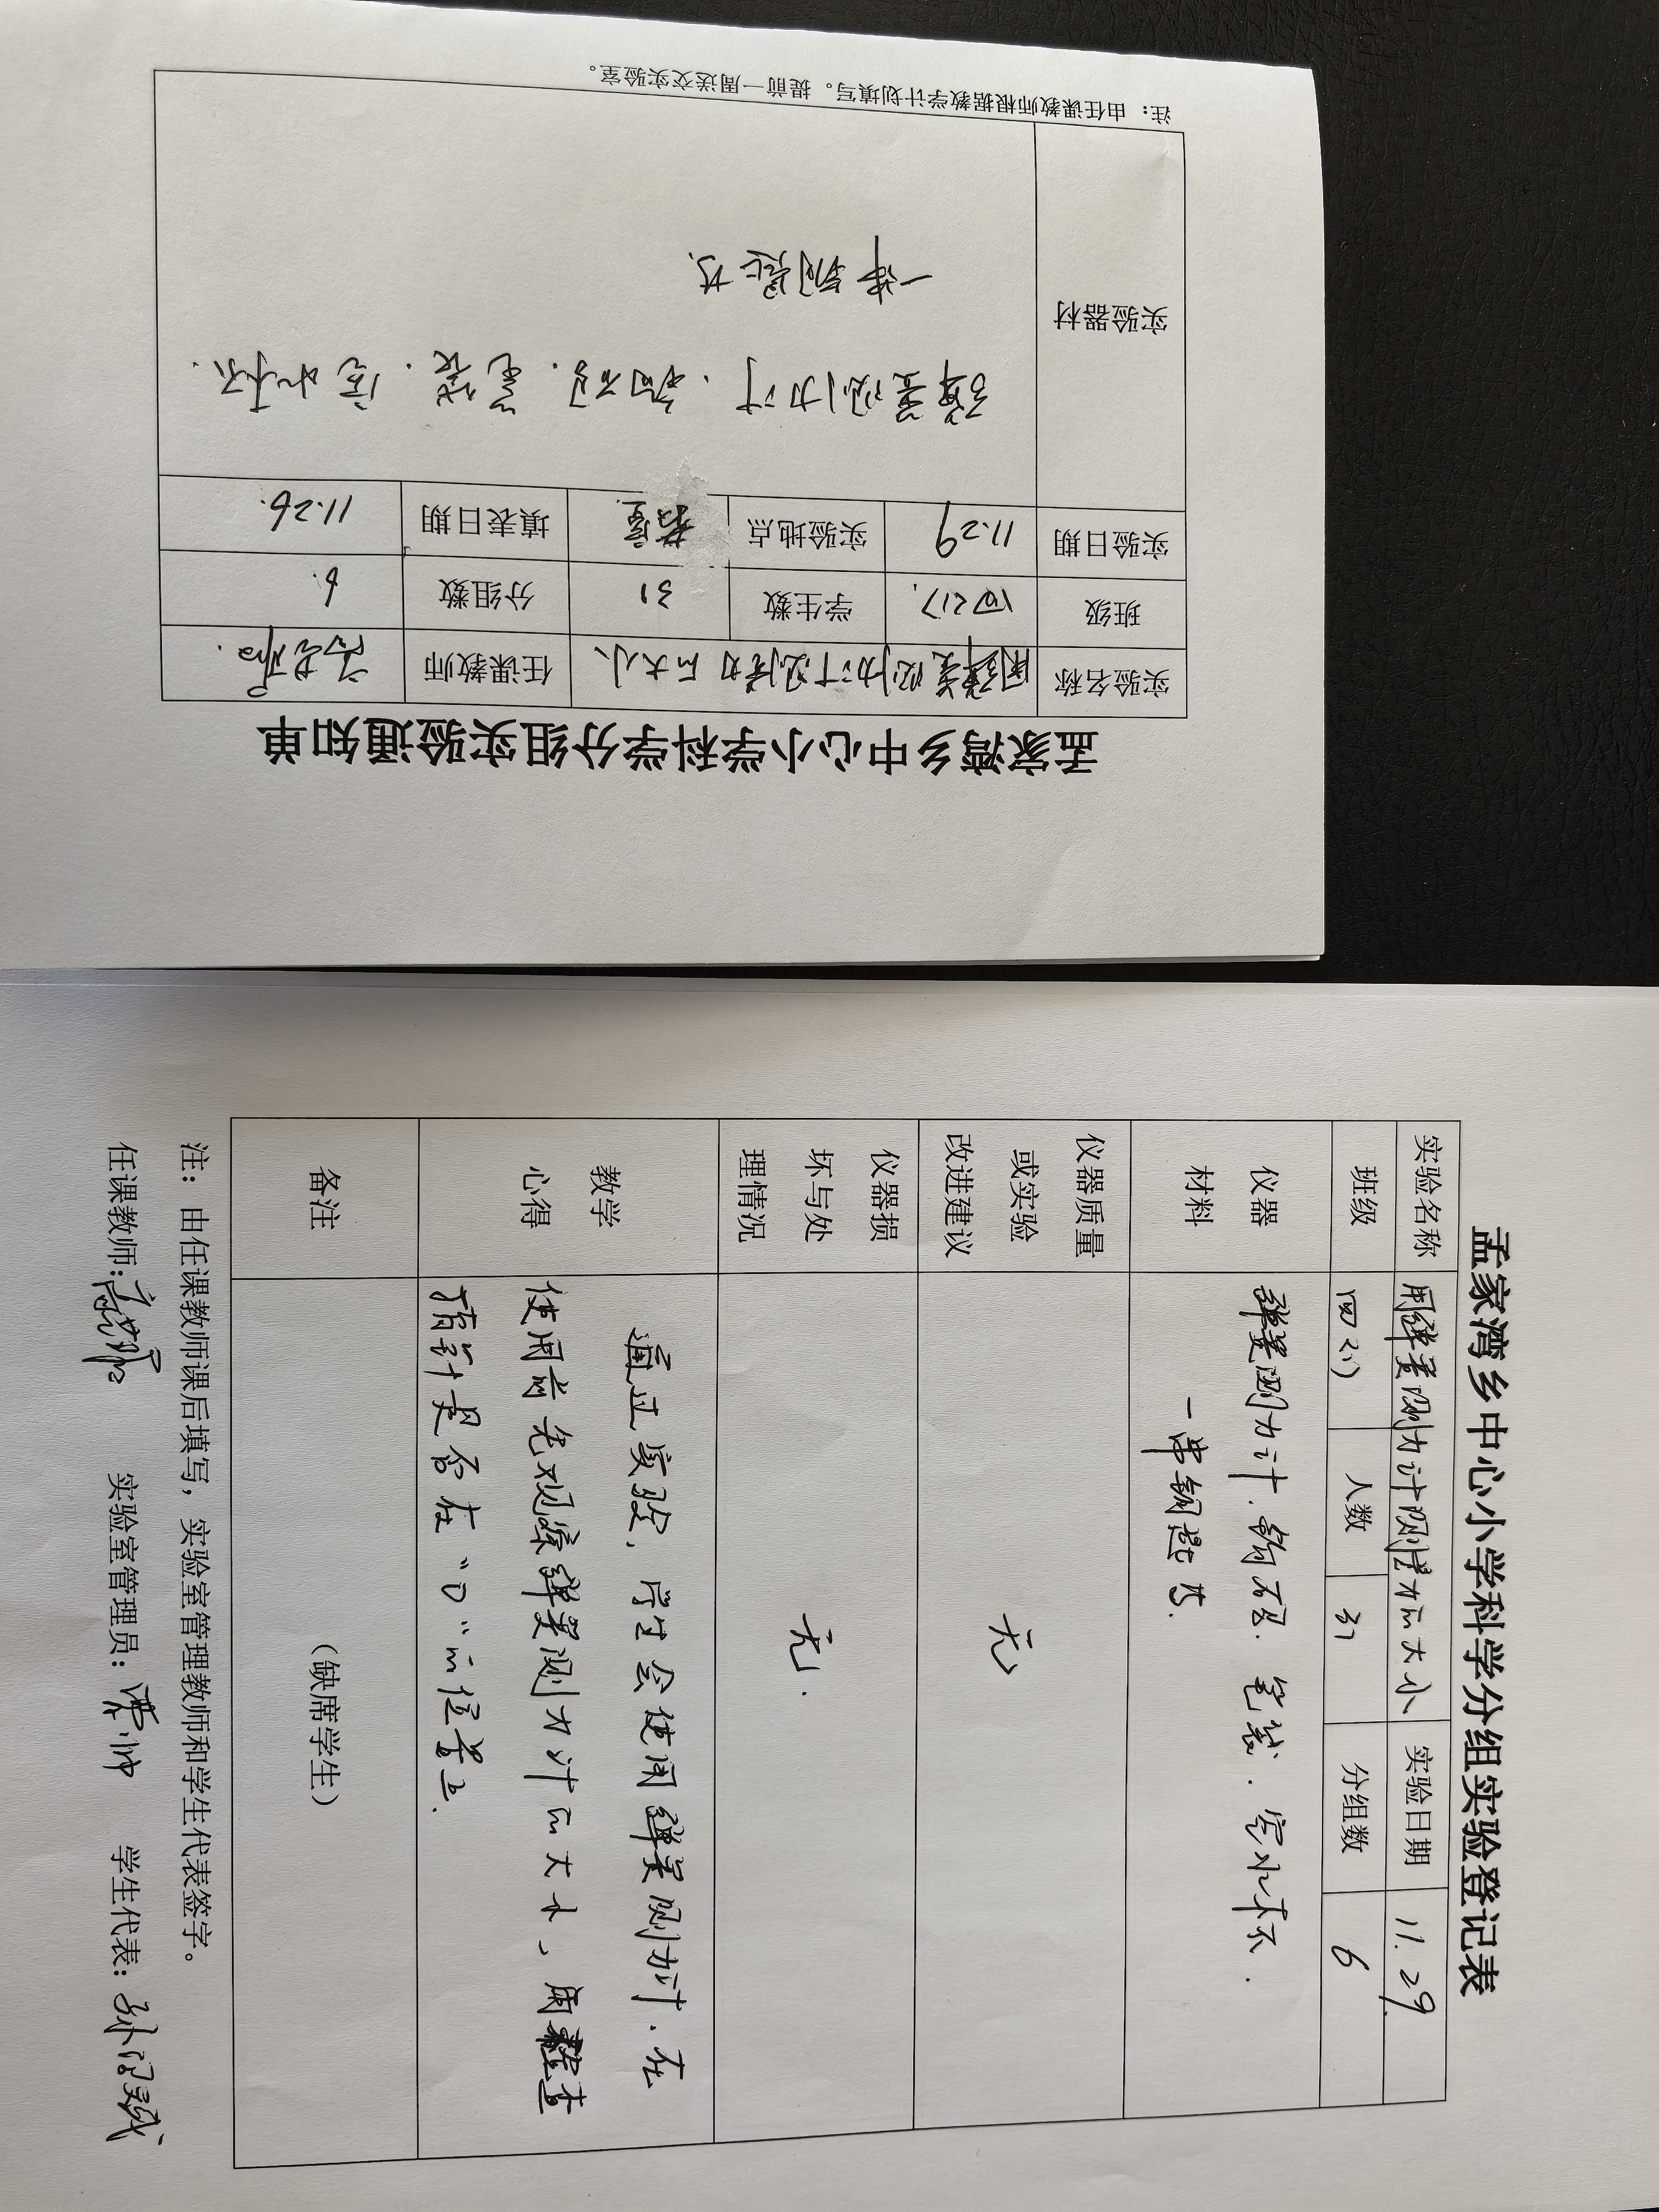 孟家湾乡中心小学科学分组实验通知单
实验名称 用弹簧测力计测量力的大小 任课教师
班级 四(2) 学生数 31 分组数 6
实验日期 11.29 实验地点 教室 填表日期 11.26.
实验器材 弹簧测力计、钩码、笔袋、空水杯、
一串钥匙等.
注：由任课教师根据教学计划填写。提前一周送交实验室。
孟家湾乡中心小学科学分组实验登记表
实验名称 用弹簧测力计测量力的大小 实验日期 11.29
班级 四(2) 人数 31 分组数 6
仪器
材料
弹簧测力计、钩码、笔袋、空水杯、
一串钥匙等.
仪器质量
或实验
改进建议
无
仪器损
坏与处
理情况
无.
教学
心得
通过实验，学生会使用弹簧测力计.在
使用前先观察弹簧测力计的大小，检查
指针是否在“0”的位置上.
备注
（缺席学生）
注：由任课教师课后填写，实验室管理教师和学生代表签字。
任课教师: 实验室管理员: 学生代表: